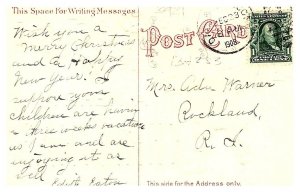 This Space For Writing Messages
Wish you a
Merry Christmas
and A Happy
New Year. I
suppose your
children are having
three weeks vacation
as I am and are
enjoying it as
well
Edith Eaton
Post Card
1908
Mrs. Adn Warner
Rockland,
R. I.
This side for the Address only.